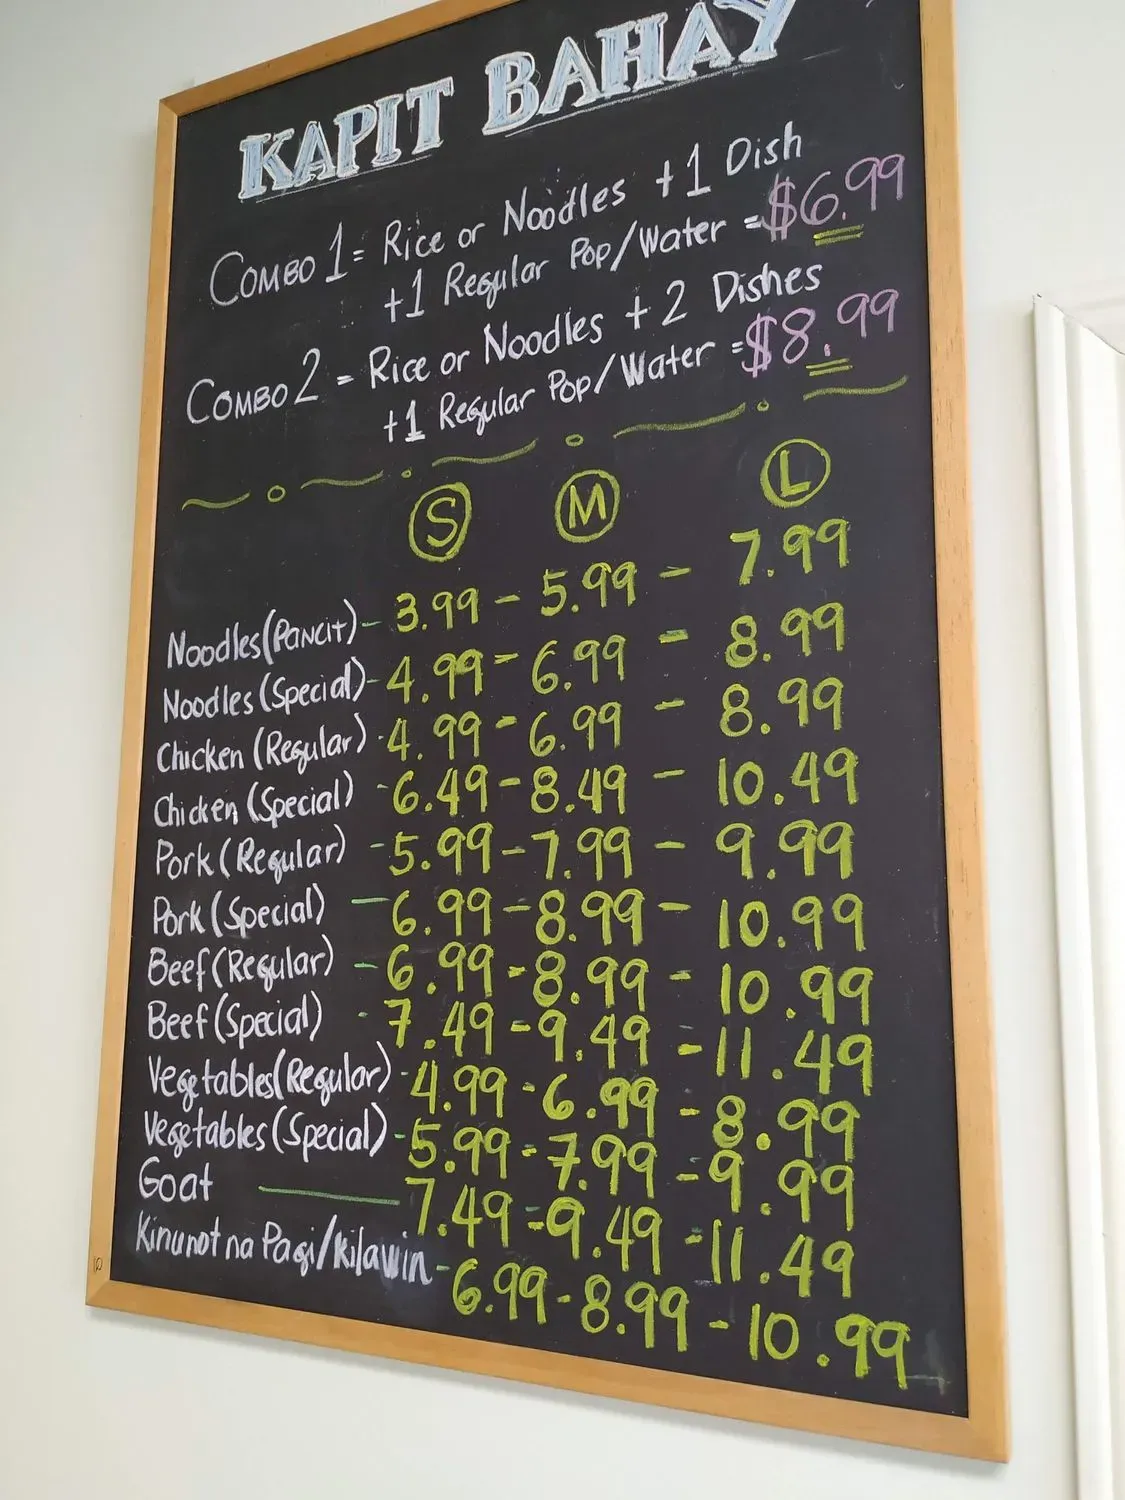 KAPIT BAHAY
COMBO 1 = Rice or Noodles +1 Dish
+1 Regular Pop/Water = $6.99
COMBO 2 = Rice or Noodles + 2 Dishes
+1 Regular Pop/Water = $8.99
S M L
Noodles (PANCIT) - 3.99 - 5.99 - 7.99
Noodles (Special) - 4.99 - 6.99 - 8.99
Chicken (Regular) - 4.99 - 6.99 - 8.99
Chicken (Special) - 6.49 - 8.49 - 10.49
Pork (Regular) - 5.99 - 7.99 - 9.99
Pork (Special) - 6.99 - 8.99 - 10.99
Beef (Regular) - 6.99 - 8.99 - 10.99
Beef (Special) - 7.49 - 9.49 - 11.49
Vegetables (Regular) - 4.99 - 6.99 - 8.99
Vegetables (Special) - 5.99 - 7.99 - 9.99
Goat - 7.49 - 9.49 - 11.49
Kinunot na Pagi/kilawin - 6.99 - 8.99 - 10.99